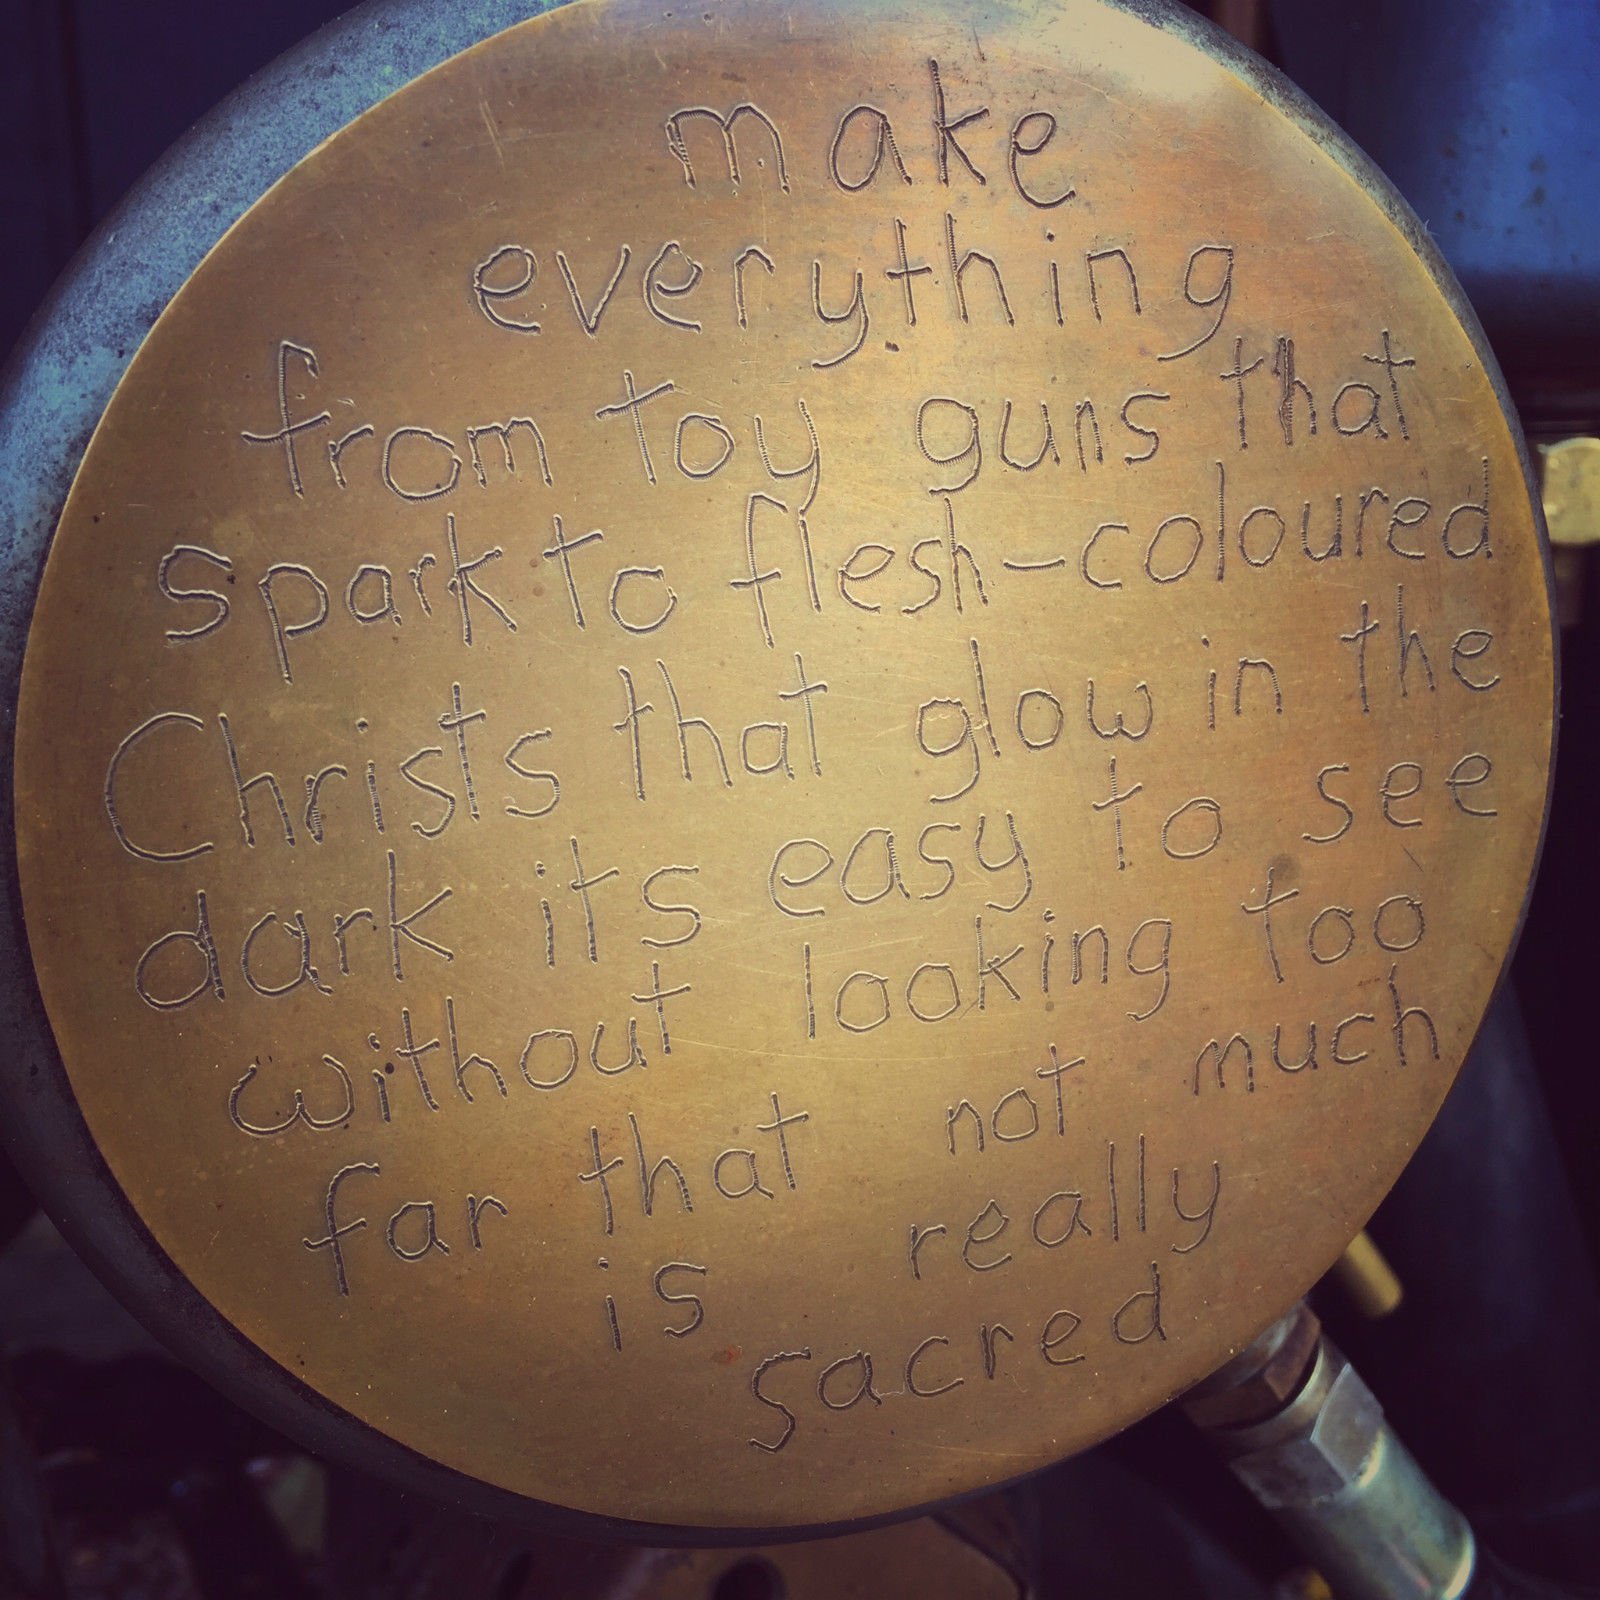 make
everything
from toy guns that
spark to flesh-coloured
Christs that glow in the
dark its easy to see
without looking too
far that not much
is really
sacred